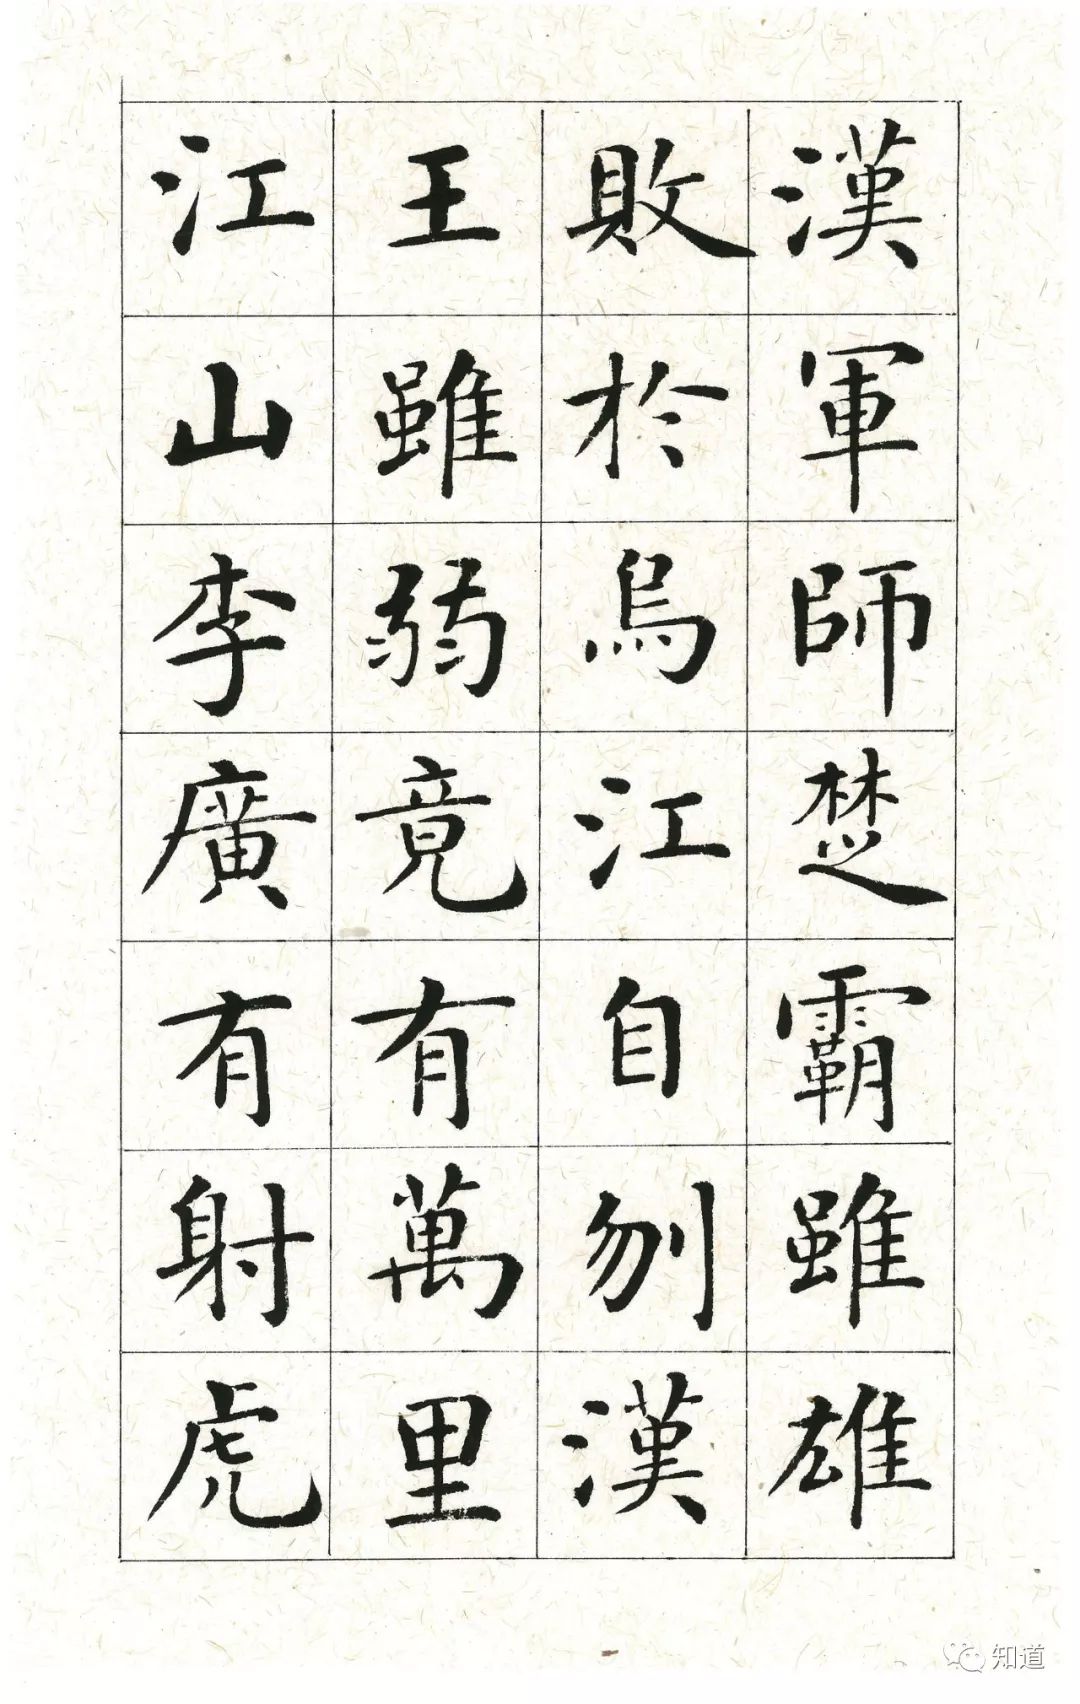 漢軍師楚霸雖雄
敗於烏江自刎漢
王雖弱竟有萬里
江山李廣有射虎
知道